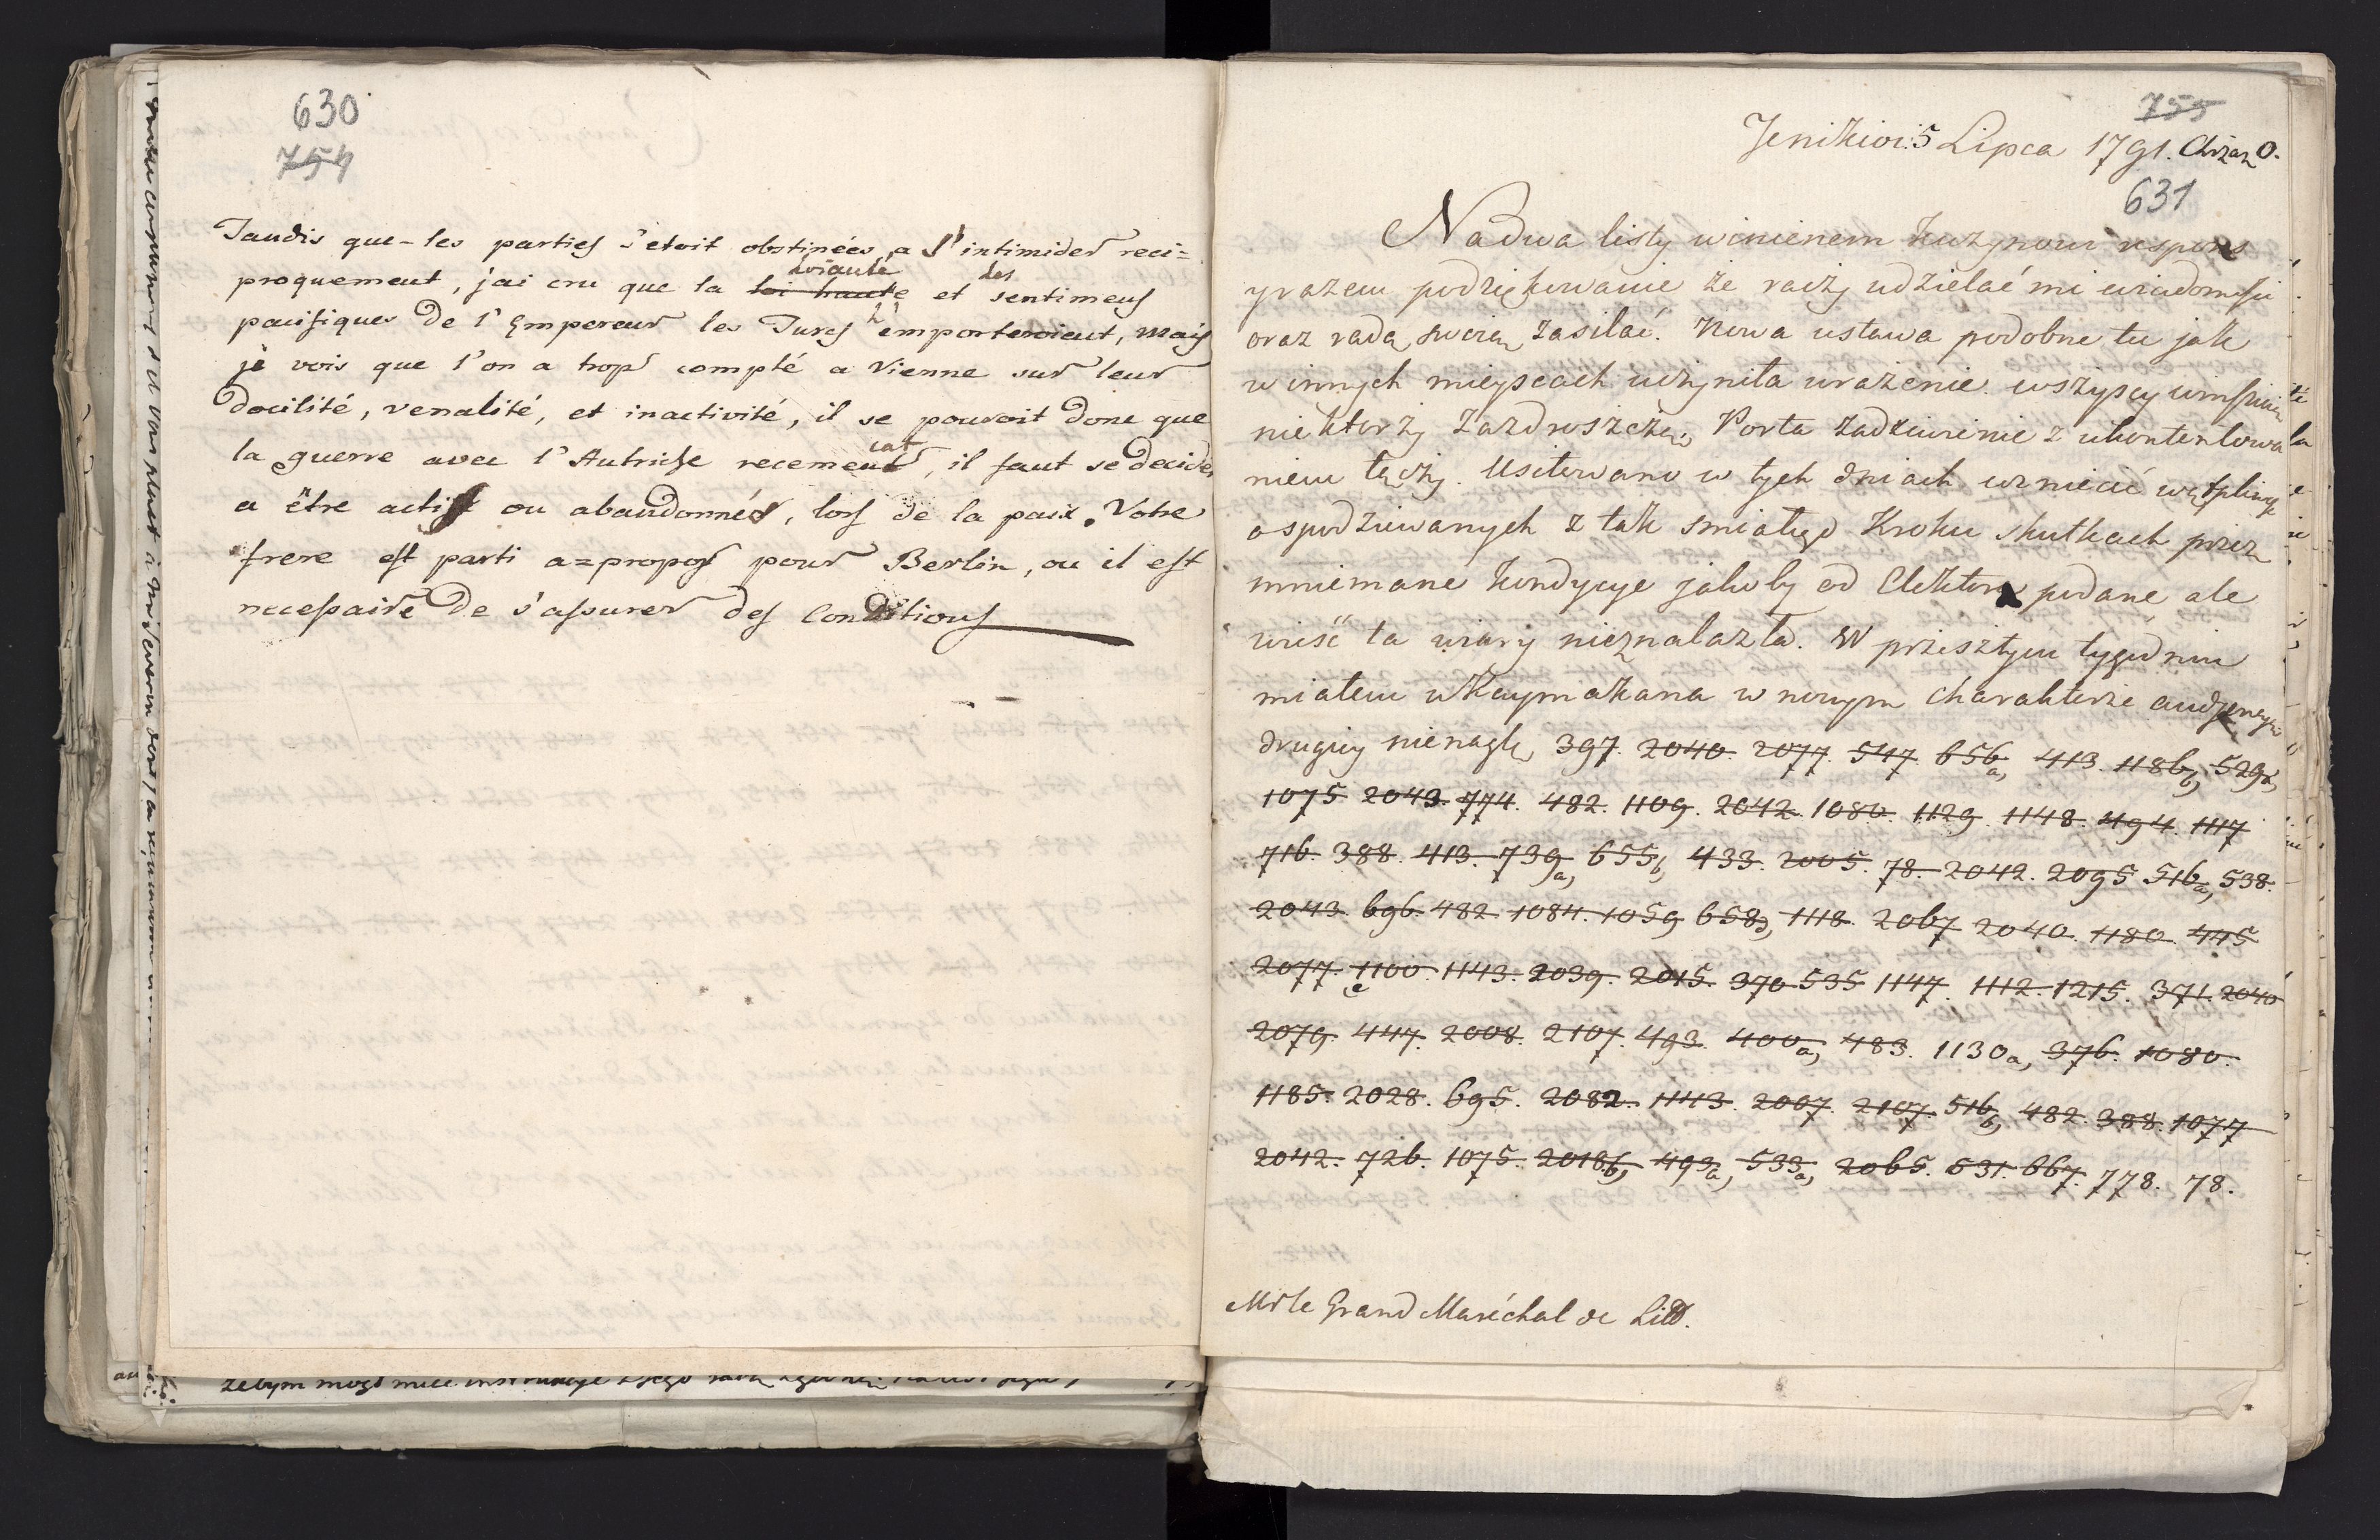 630
754
Tandis que les parties s'etoit obstinées a s'intimider reci=
proquement, j'ai cru que la loi haute loïauté et des sentimens
pacifiques de l'Empereur les Turcs l'emporteroient, mais
je vois que l'on a trop compté a Vienne sur leur
docilité, venalité, et inactivité, il se pouroit donc que
la guerre avec l'Autriche recemençat, il faut se decider
a être actifs ou abandonnés, lors de la paix. Votre
frere est parti a=propos pour Berlin, ou il est
necessaire de s'assurer des Conditions
755
Jenikioi 5 Lipca 1791. Chrzan O.
631
Na dwa listy winienem Kuzynowi respons
y razem podziękowanie że raczy udzielać mi wiadomosci
oraz radą swoią zasilać. Nowa ustawa podobne tu jak
w innych mieyscach uczyniła wrażenie wszyscy
niektorzy zazdroszczą, Porta zadziwienie z ukontentowa
niem łączy. Usitowano w tych dniach wzniecić wątpliwość
o spodziewanych z tak smiałego Kroku skutkach przez
mniemane kondycye jakoby od Elektora podane, ale
wieść ta wiary nieznalazła. W przeszłym tygodniu
miałem u Kaymakana w nowym charakterze audyencyą
drugiey nienagle 397. 2040. 2077. 547. 656a, 413. 1186b, 529a,
1075 2043. 774. 482. 1109. 2042. 1080. 1129. 1148. 494. 1117
716. 388. 413. 739a, 655b, 433. 2005. 78. 2042. 2095 516a, 538.
2043. 696. 482. 1084. 1059 658b, 1118. 2067 2040. 1180. 445
2077. 1100e 1143. 2039. 2015. 370 535 1147. 1112. 1215. 371. 2040
2079. 447. 2008. 2107. 493. 400a, 483. 1130a, 376. 1080.
1185. 2028. 695. 2082. 1143. 2007. 2107. 516b, 482. 388. 1077
2042. 726. 1075. 2018b, 493a, 533a, 2065. 531. 667. 778. 78.
Mr le Grand Maréchal de Litt.